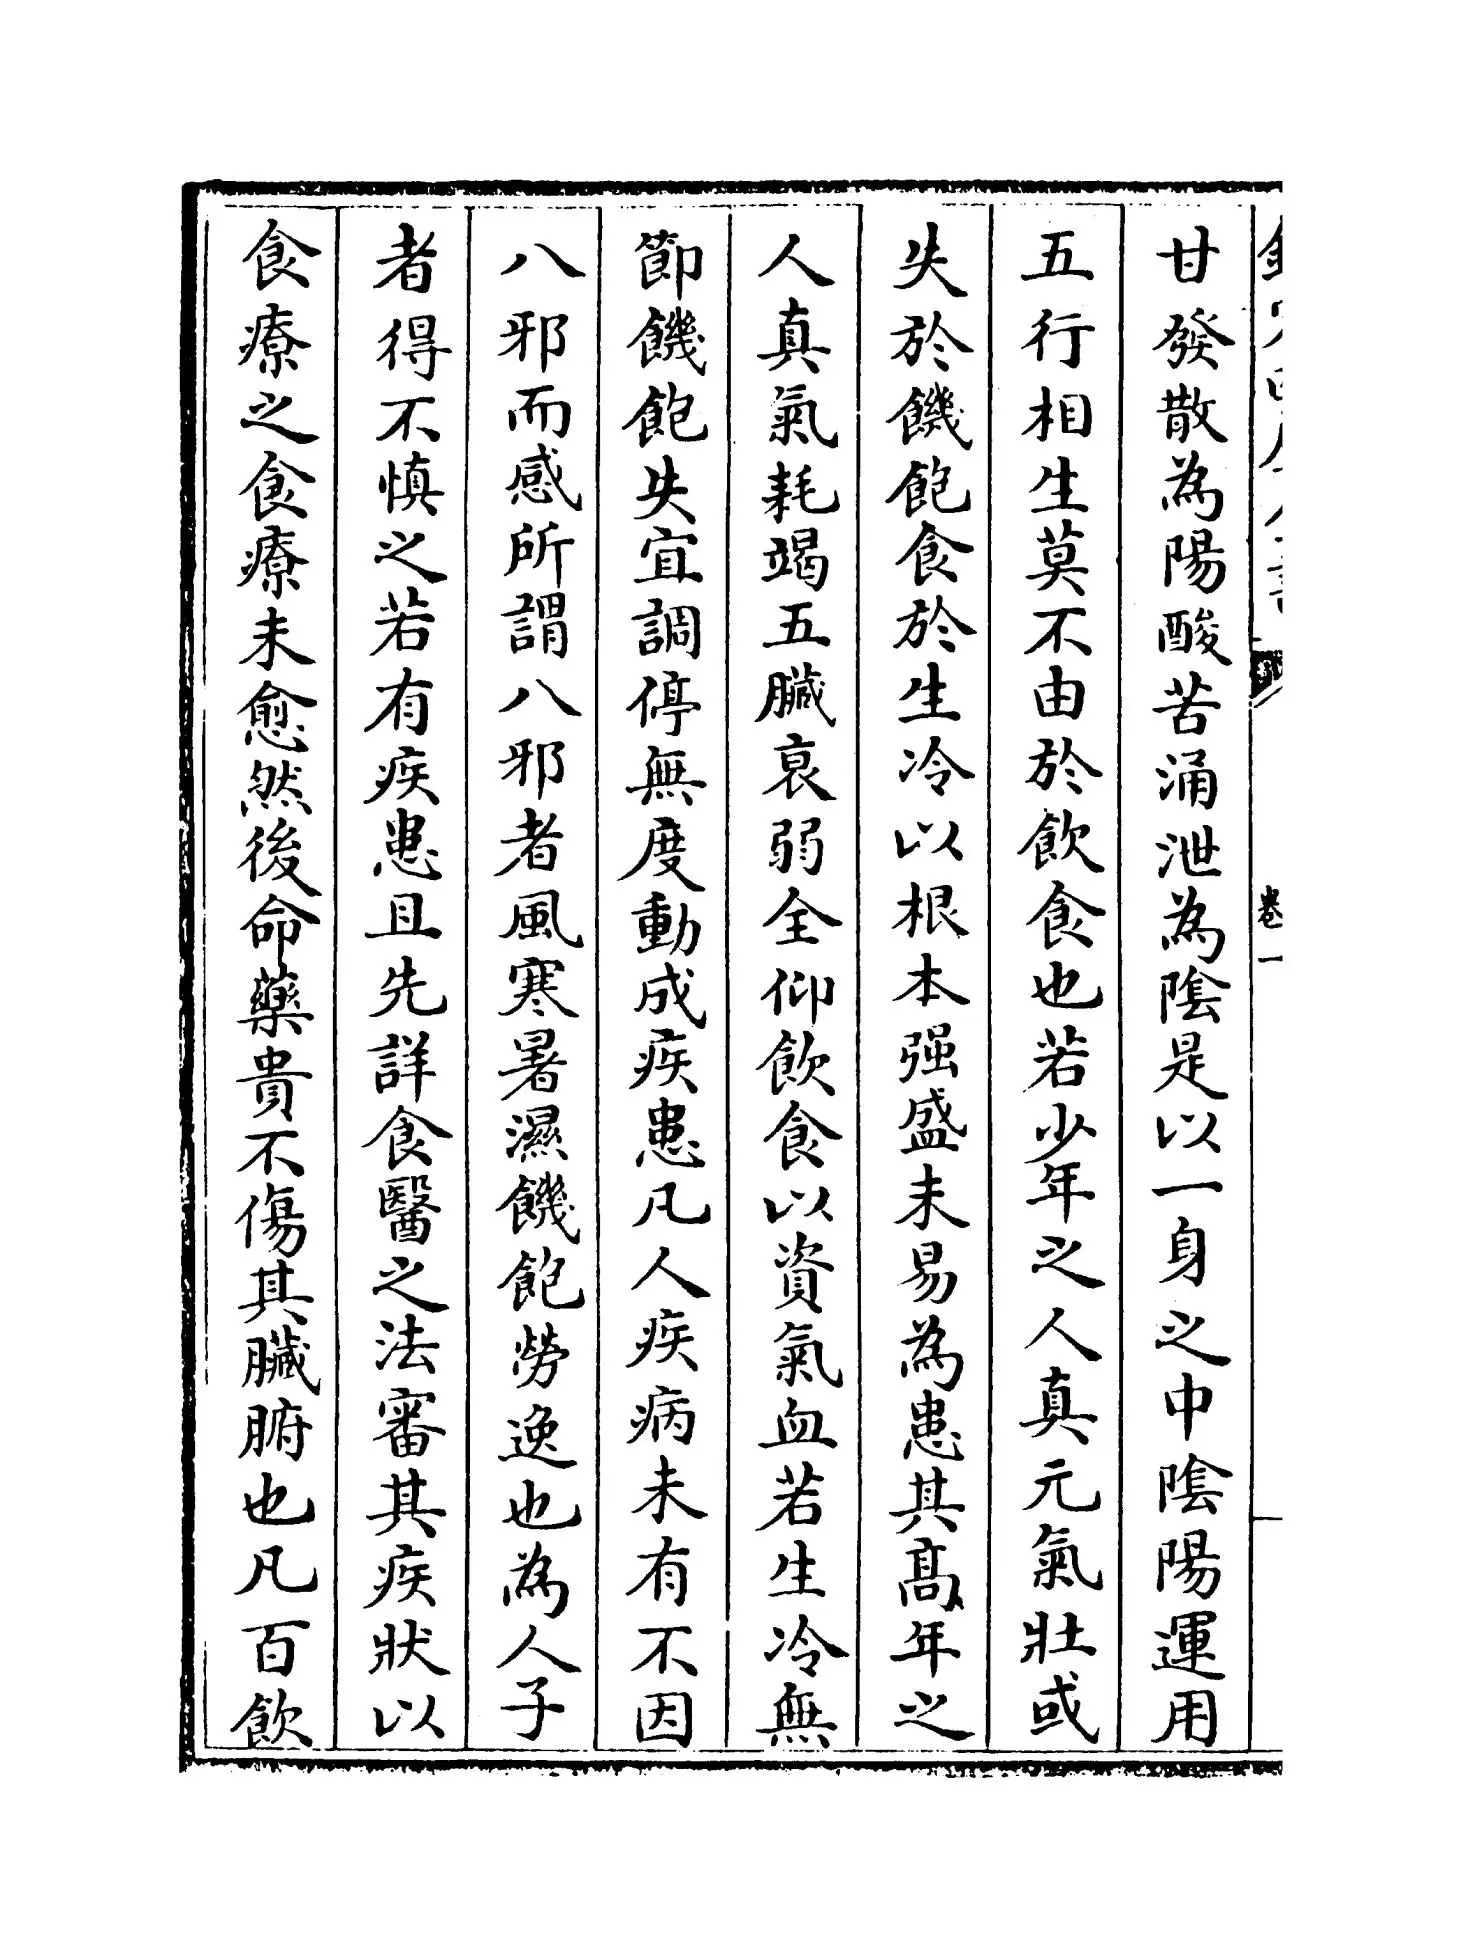 甘發散為陽酸苦涌泄為陰是以一身之中陰陽運用
五行相生莫不由於飲食也若少年之人真元氣壯或
失於饑飽食於生冷以根本强盛未易為患其髙年之
人真氣耗竭五臟衰弱全仰飲食以資氣血若生冷無
節饑飽失宜調停無度動成疾患凡人疾病未有不因
八邪而感所謂八邪者風寒暑濕饑飽勞逸也為人子
者得不慎之若有疾患且先詳食醫之法審其疾狀以
食療之食療未愈然後命藥貴不傷其臟腑也凡百飲
卷一